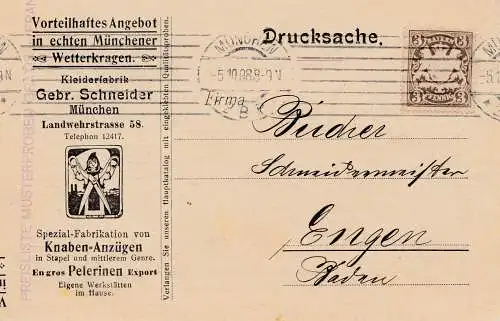 Vorteilhaftes Angebot
in echten Münchener
Wetterkragen.
Kleiderfabrik
Gebr. Schneider
München
Landwehrstrasse 58.
Telephon 12417.
Spezial-Fabrikation von
Knaben-Anzügen
in Stapel und mittlerem Genre.
En gros Pelerinen Export
Eigene Werkstätten
im Hause.
Verlangen Sie unseren Hauptkatalog mit eingeklebten Qualitätsproben.
PREISLISTE MUSTERPROBEN
Drucksache.
MÜNCHEN
B
3 3
3 3
PFENNIG
Firma
Bücher
Schneidermeister
Engen
Baden